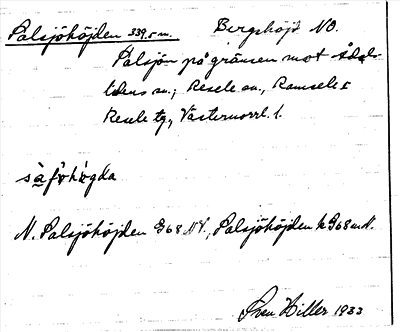 Palsjöhöjden 339.5 m. Bergshöjd NO.
Palsjön på gränsen mot Ådals-
lidens sn.; Resele sn., Ramsele o
Resele tg, Västernorrl. l.
N. Palsjöhöjden G68 NV., Palsjöhöjden k G68 m N.
Sven Hiller 1933